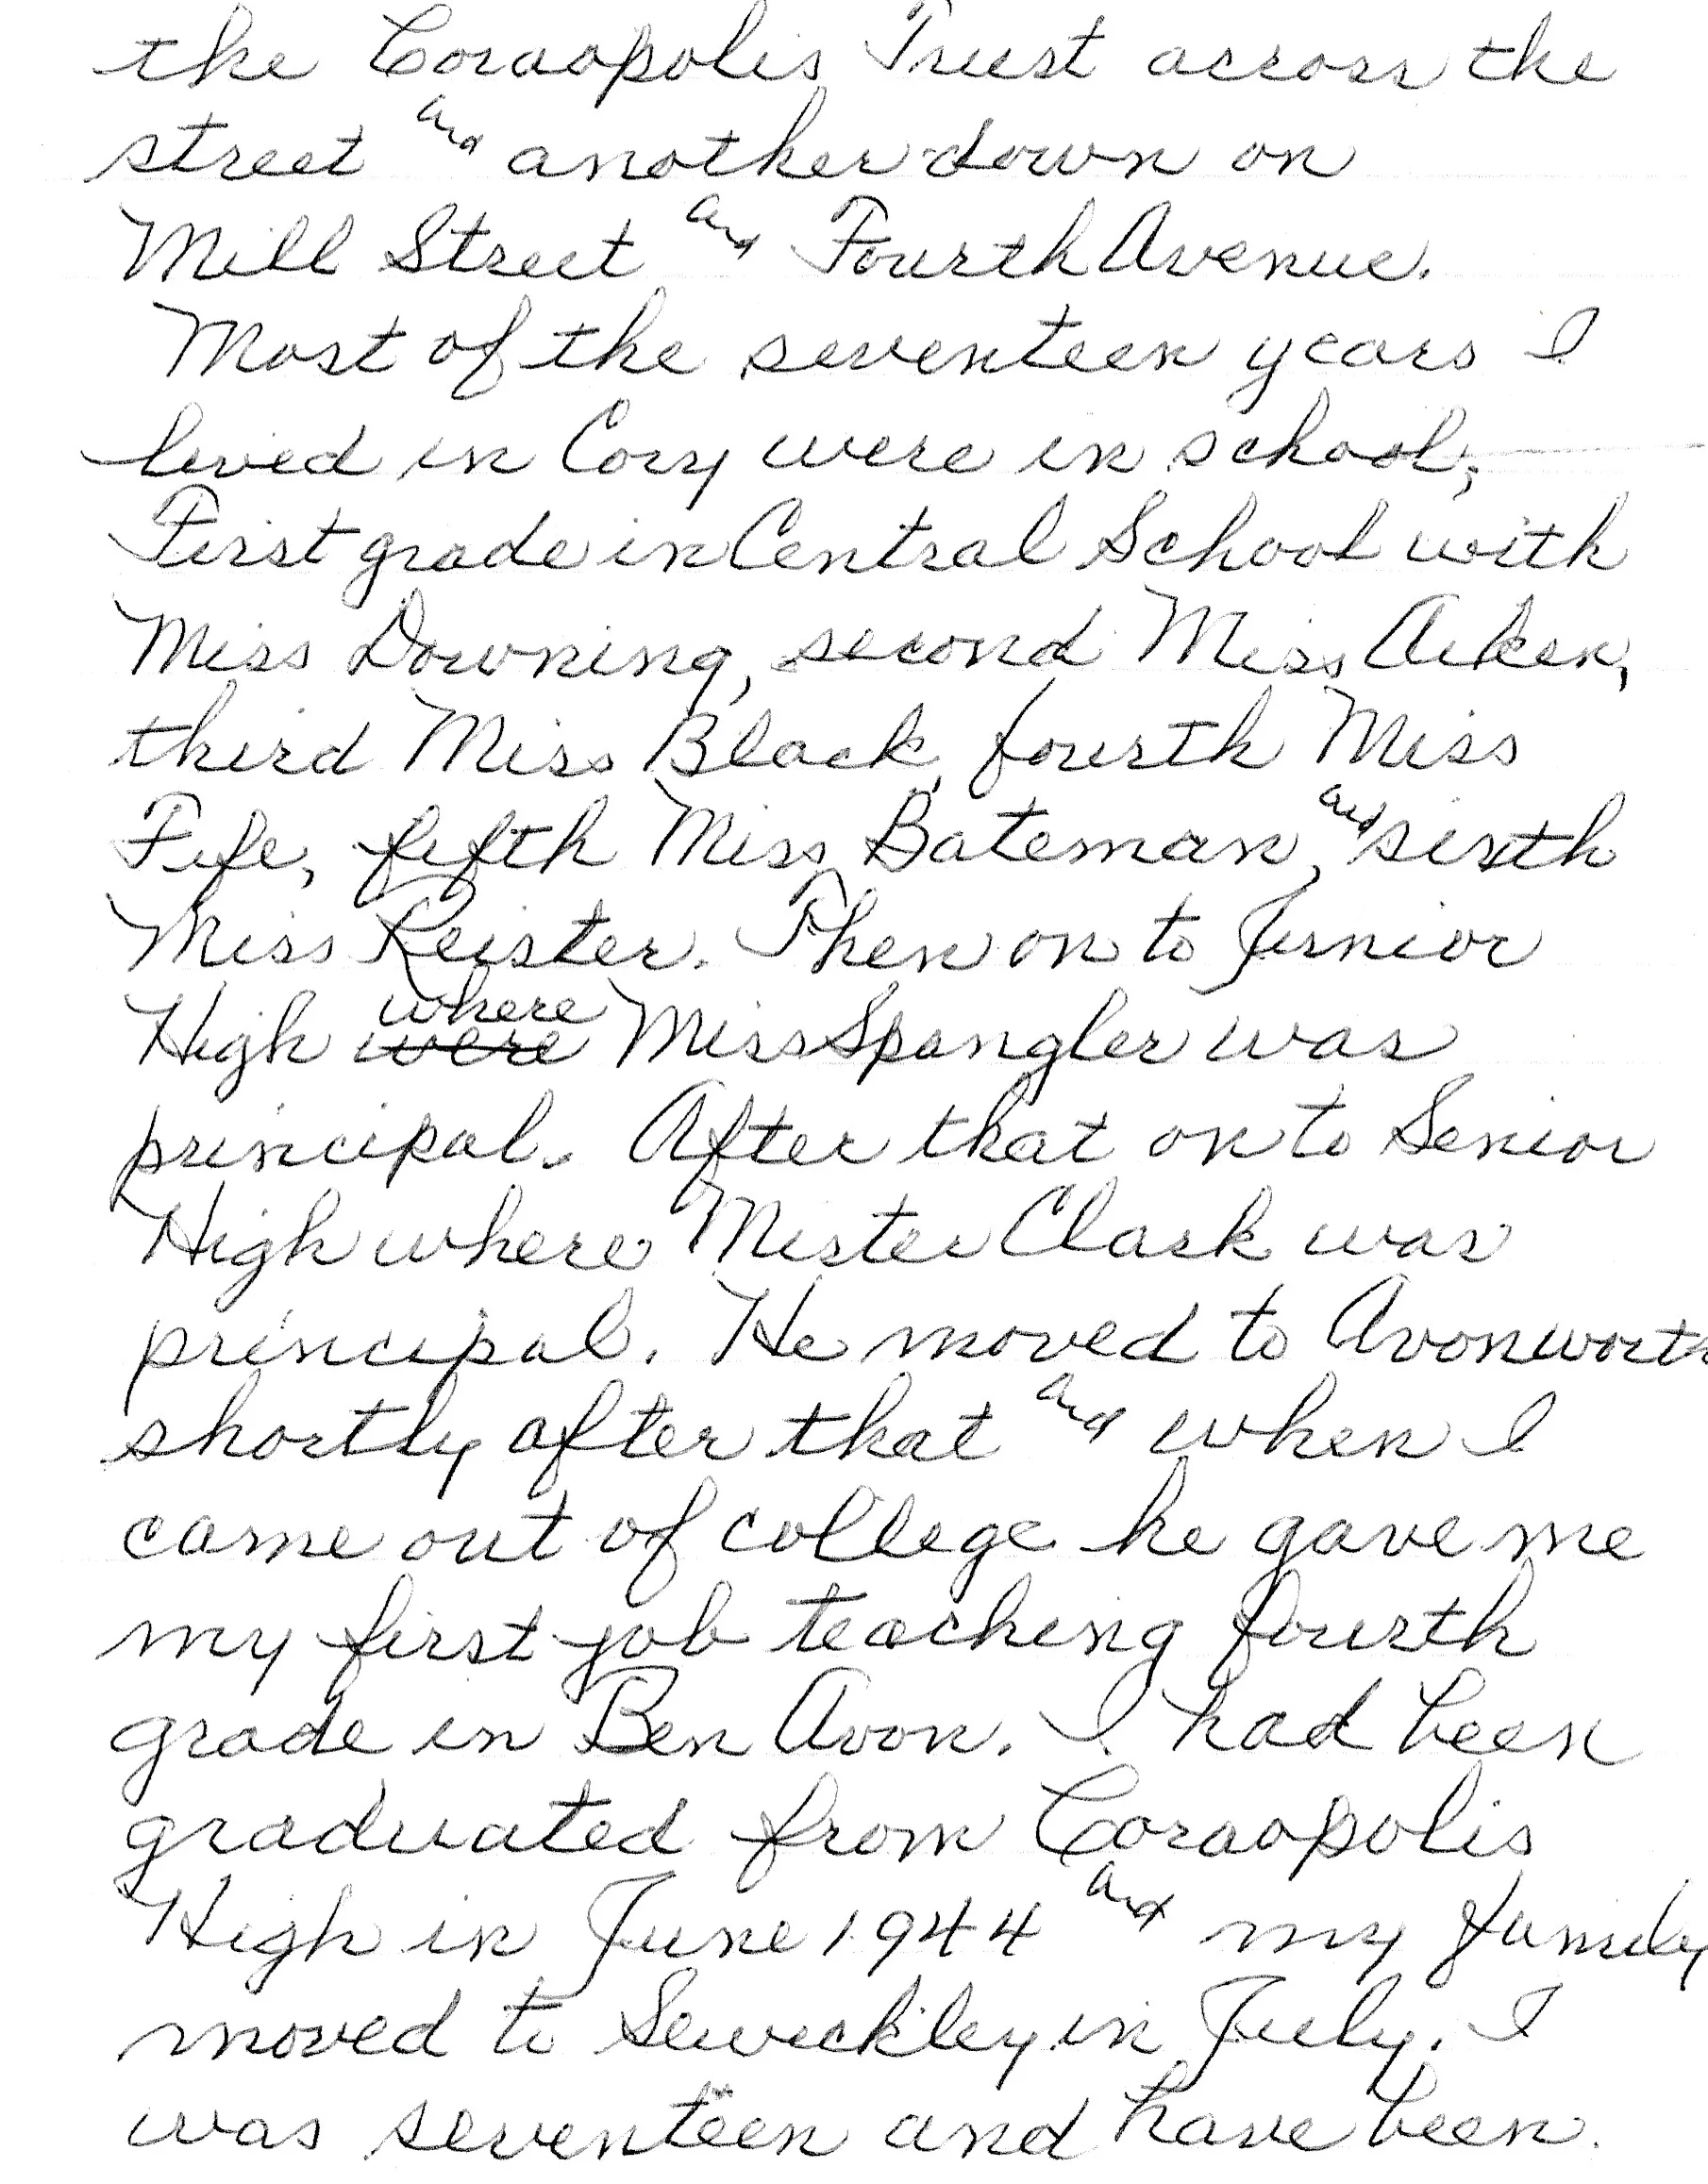 the Coraopolis Trust across the
street and another down on
Mill Street and Fourth Avenue.
Most of the seventeen years I
lived in Cory were in school;
First grade in Central School with
Miss Downing, second Miss Aiken,
third Miss Black, fourth Miss
Fife, fifth Miss Bateman, and sixth
Miss Reister. Then on to Junior
High were where Miss Spangler was
principal. After that on to Senior
High where Mister Clark was
principal. He moved to Avonworth
shortly after that and when I
came out of college he gave me
my first job teaching fourth
grade in Ben Avon. I had been
graduated from Coraopolis
High in June 1944 and my family
moved to Sewickley in July. I
was seventeen and have been.